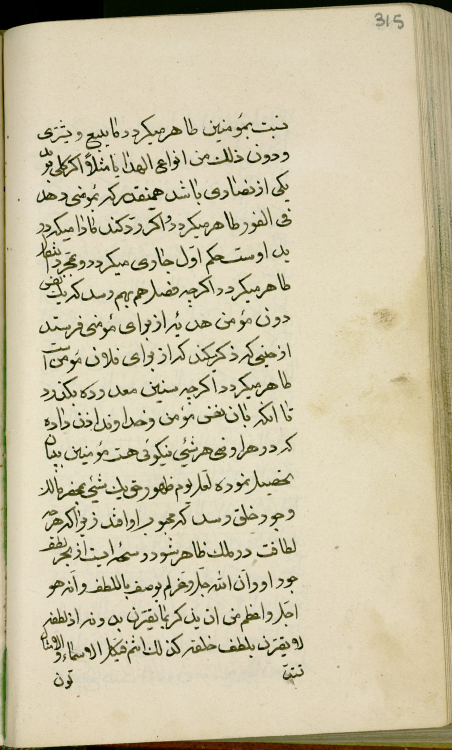 315
نسبت بمؤمنین طاهر میکردد کما یبیع ویشری
ودون ذلك من انواع الهدایا مثلاً اکر کلی نزد
یکی از نصاری باشد همینقدر که بمؤمنی دهد
فی الفور طاهر میکردد واکر رد کند مادام که در
ید اوست حکم اول جاری میکردد وبمجرد انتقال
طاهر میکردد اکرچه فصل هم بهم رسد که یك نفس
دون مؤمن هدیه از برای مؤمنی فرستد
از حینی که ذکر کند که از برای فلان مؤمن است
طاهر میکردد اکرچه سنین معدوده بکذرد
تا انکه بان نفس مؤمن وخداوند اذن داده
که در هر ارضی هر شیئ نیکوئی هست مؤمنین ببیان
تحصیل نموده لعل یوم ظهور حق یك شیئ بمقر مالك
وجود خلق رسد که محبوب او افتد زیرا که هر چه
لطافت در ملك ظاهر شود رشحه ایست از بحر لطف
جود او وان الله جل وعز لم یوصف باللطف وانه هو
اجل واعظم من ان یذکر بما یقترن به دونه اذ لطفه
لا یقترن بلطف خلقه کذلك انتم فی کل الاسماء والامثال
تتق‍ تون